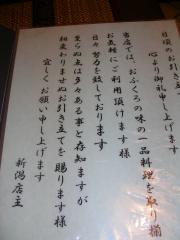 日頃のお引き立て
心より御礼申し上げます
当店では、おふくろの味の一品料理を取り揃
お気軽にご利用頂けます様
日々努力を致しております
至らぬ点は多々ある事と存知ますが
相変わりませぬお引き立てを賜ります様
宜しくお願い申し上げます
新潟店主